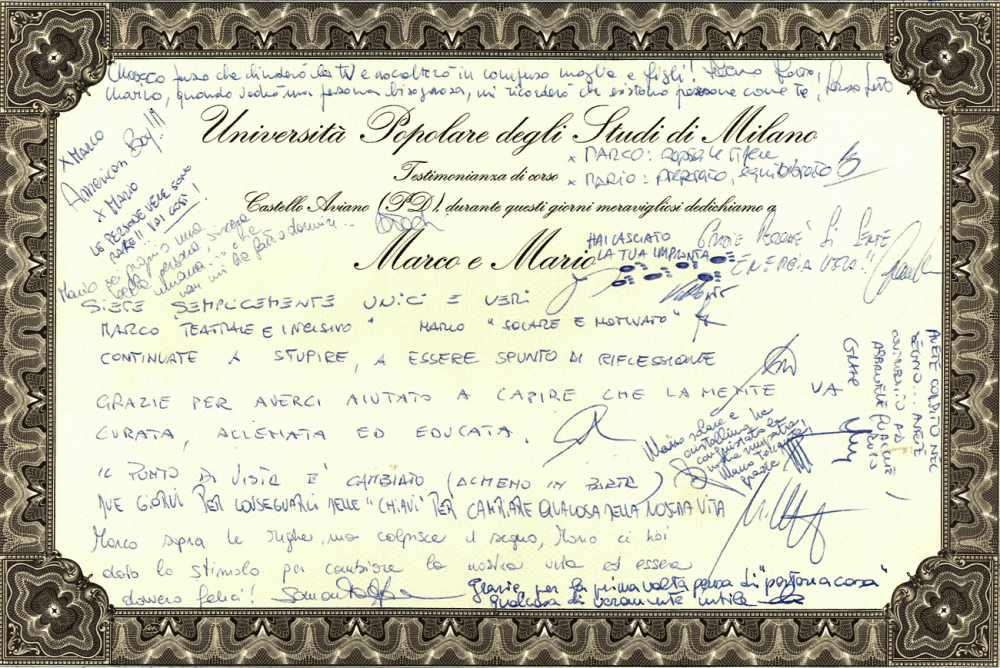 penso che chiuderò la TV e ascolterò in compenso moglie e figli!
Marco, quando vedrò una persona bisognosa, mi ricorderò che esistono persone come te,
Università Popolare degli Studi di Milano
Testimonianza di corso
x MARCO: sopra le righe
x MARIO: PREPARATO, equilibrato
Castello Aviano (PD), durante questi giorni meravigliosi dedichiamo a
Marco e Mario
x MARCO
American Boy!!
x MARIO
LE PERSONE VERE SONO
RARE!! VAI COSÌ!
Mario sei proprio una
bella persona, sincera
umana... che
non mi ha fatto dormire...
HAI LASCIATO
LA TUA IMPRONTA
GRAZIE PERCHÉ SI SENTE
ENERGIA VERA!!
SIETE SEMPLICEMENTE UNICI E VERI
MARCO TEATRALE E INCISIVO" MARIO "SOLARE E MOTIVATO"
CONTINUATE A STUPIRE, A ESSERE SPUNTO DI RIFLESSIONE
GRAZIE PER AVERCI AIUTATO A CAPIRE CHE LA MENTE VA
CURATA, ALLENATA ED EDUCATA.
AVETE COLPITO NEL
SEGNO... AVETE
CONTRIBUITO AD
Mario solare e
cristallino ha
conquistato la
mia
Mario
grazie
IL PUNTO DI VISTA È CAMBIATO (ALMENO IN PARTE)
DUE GIORNI PER CONSEGNARCI DELLE "CHIAVI" PER CAMBIARE QUALCOSA DELLA NOSTRA VITA
Marco sopra le righe, ma colpisce il segno, Mario ci hai
dato lo stimolo per cambiare la nostra vita ed essere
davvero felici!
Grazie, per la prima volta penso di "portare a casa"
qualcosa di veramente utile